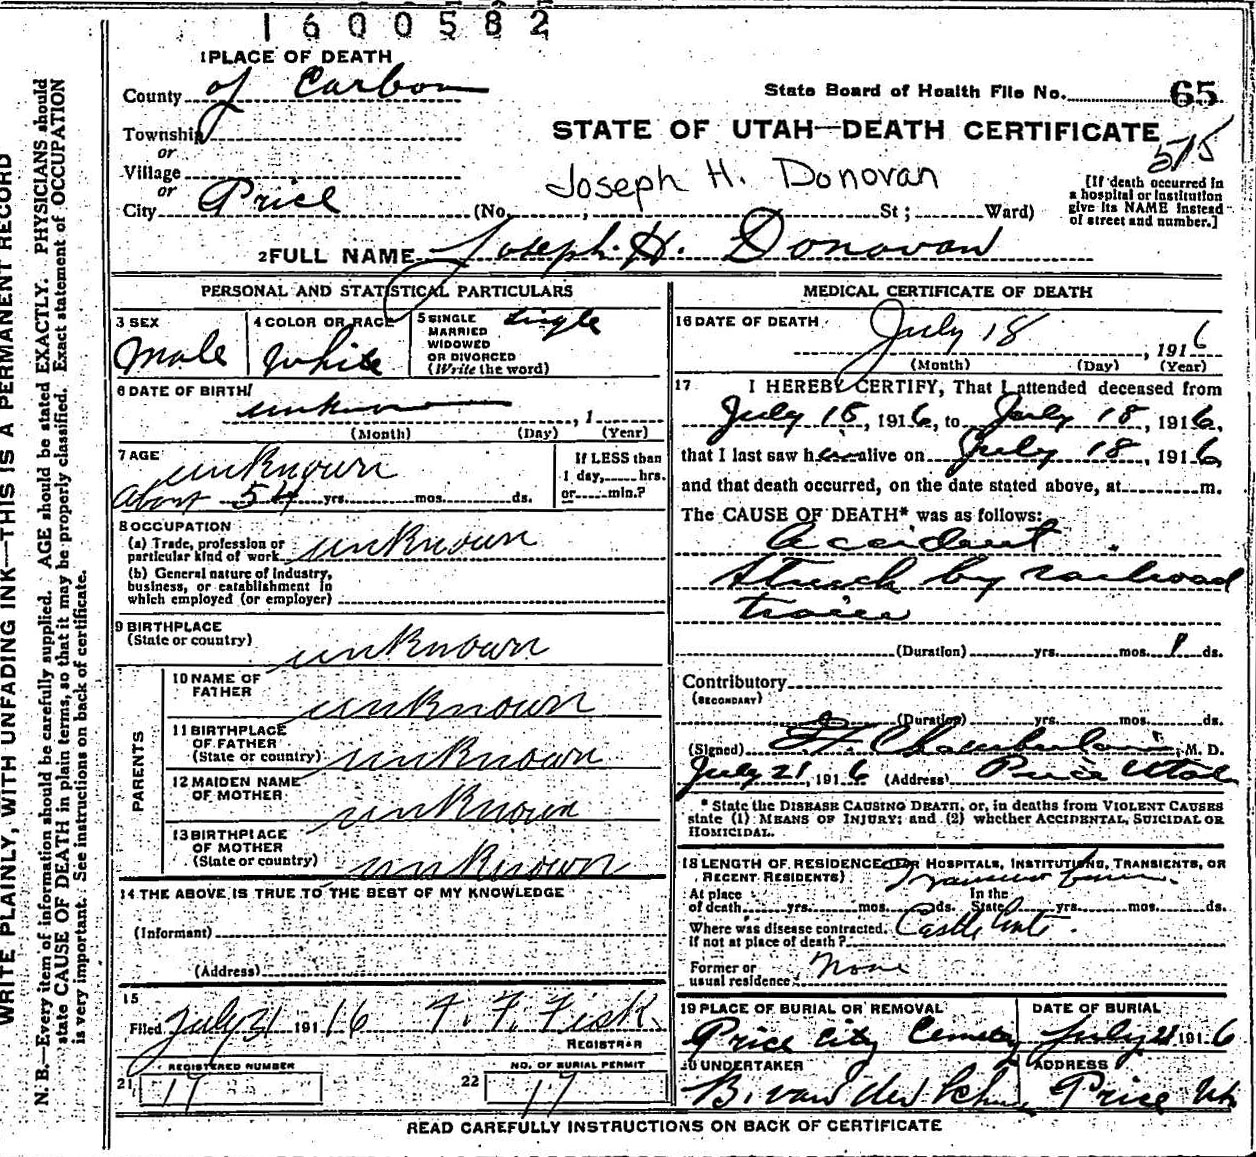 1600582
1 PLACE OF DEATH
County of Carbon
State Board of Health File No. 65
Township
STATE OF UTAH—DEATH CERTIFICATE
or
515
Village
or
Joseph H. Donovan
[If death occurred in
a hospital or institution
give its NAME instead
of street and number.]
City Price (No. ; St; Ward)
2 FULL NAME Joseph H. Donovan
PERSONAL AND STATISTICAL PARTICULARS
3 SEX
Male
4 COLOR OR RACE
White
5 SINGLE
MARRIED
WIDOWED
OR DIVORCED
(Write the word)
Single
6 DATE OF BIRTH
unknown , 1
(Month) (Day) (Year)
7 AGE
unknown
About 54 yrs. mos. ds.
If LESS than
1 day, hrs.
or min.?
8 OCCUPATION
(a) Trade, profession or
particular kind of work unknown
(b) General nature of industry,
business, or establishment in
which employed (or employer)
9 BIRTHPLACE
(State or country) unknown
PARENTS
10 NAME OF
FATHER unknown
11 BIRTHPLACE
OF FATHER
(State or country) unknown
12 MAIDEN NAME
OF MOTHER unknown
13 BIRTHPLACE
OF MOTHER
(State or country) unknown
14 THE ABOVE IS TRUE TO THE BEST OF MY KNOWLEDGE
(Informant)
(Address)
15
Filed July 21 191 16 F. F. Fisk
REGISTRAR
REGISTERED NUMBER
21 17
NO. OF BURIAL PERMIT
22 17
MEDICAL CERTIFICATE OF DEATH
16 DATE OF DEATH
July 18 , 1916
(Month) (Day) (Year)
17 I HEREBY CERTIFY, That I attended deceased from
July 18, 1916, to July 18, 1916,
that I last saw him alive on July 18, 1916
and that death occurred, on the date stated above, at m.
The CAUSE OF DEATH* was as follows:
Accident
Struck by railroad
train
(Duration) yrs. mos. 1 ds.
Contributory
(SECONDARY)
(Duration) yrs. mos. ds.
(Signed) Chamberlain, M. D.
July 21, 1916 (Address) Price Utah
* State the DISEASE CAUSING DEATH, or, in deaths from VIOLENT CAUSES
state (1) MEANS OF INJURY; and (2) whether ACCIDENTAL, SUICIDAL OR
HOMICIDAL.
18 LENGTH OF RESIDENCE (FOR HOSPITALS, INSTITUTIONS, TRANSIENTS, OR
RECENT RESIDENTS)
At place
of death yrs. mos. ds.
In the
State yrs. mos. ds.
Where was disease contracted,
if not at place of death? Castle Gate.
Former or
usual residence None
19 PLACE OF BURIAL OR REMOVAL
Price City Cemetery
DATE OF BURIAL
July 21 1916
20 UNDERTAKER
B. van der
ADDRESS
Price Ut
READ CAREFULLY INSTRUCTIONS ON BACK OF CERTIFICATE
WRITE PLAINLY, WITH UNFADING INK—THIS IS A PERMANENT RECORD
N. B.—Every item of information should be carefully supplied. AGE should be stated EXACTLY. PHYSICIANS should
state CAUSE OF DEATH in plain terms, so that it may be properly classified. Exact statement of OCCUPATION
is very important. See instructions on back of certificate.